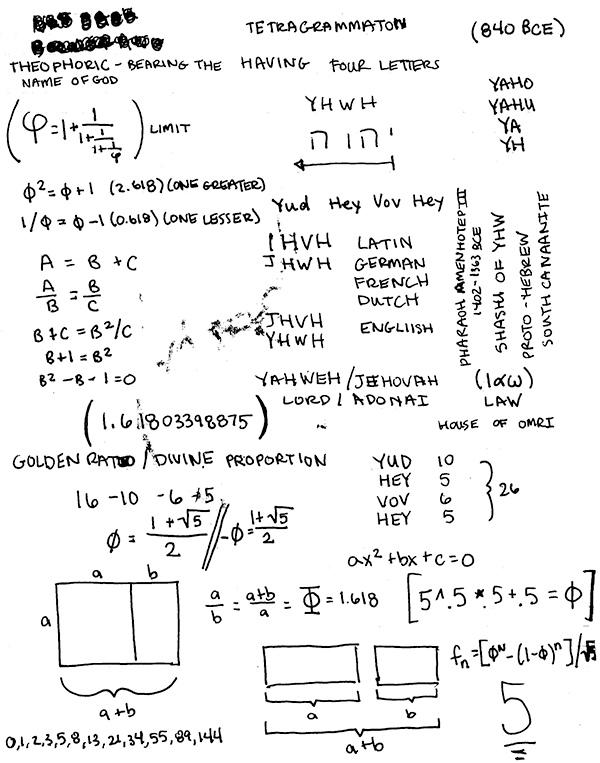 TETRAGRAMMATON (840 BCE)
THEOPHORIC - BEARING THE NAME OF GOD
HAVING FOUR LETTERS
YHWH
יהוה
YAHO
YAHU
YA
YH
(φ = 1 + 1/(1 + 1/(1 + 1/φ))) LIMIT
ϕ² = ϕ + 1 (2.618) (ONE GREATER)
1/ϕ = ϕ - 1 (0.618) (ONE LESSER)
Yud Hey Vov Hey
A = B + C
A/B = B/C
B + C = B²/C
B + 1 = B²
B² - B - 1 = 0
IHVH LATIN
JHWH GERMAN
FRENCH
DUTCH
JHVH ENGLIISH
YHWH
PHARAOH AMENHOTEP III
1402-1363 BCE
SHASHA OF YHW
PROTO-HEBREW
SOUTH CANAANITE
YAHWEH / JEHOVAH (Ιαω)
LORD / ADONAI LAW
HOUSE OF OMRI
(1.61803398875)
GOLDEN RATIO / DIVINE PROPORTION
YUD 10
HEY 5
VOV 6
HEY 5
} 26
16 - 10 - 6 + 5
ϕ = (1 + √5)/2 // -ϕ = (1 + √5)/2
ax² + bx + c = 0
a b
a
a + b
a/b = (a+b)/a = Φ = 1.618
[5^.5 * .5 + .5 = ϕ]
fn = [ϕᴺ - (1-ϕ)ⁿ] / √5
a b
a + b
5
0, 1, 2, 3, 5, 8, 13, 21, 34, 55, 89, 144